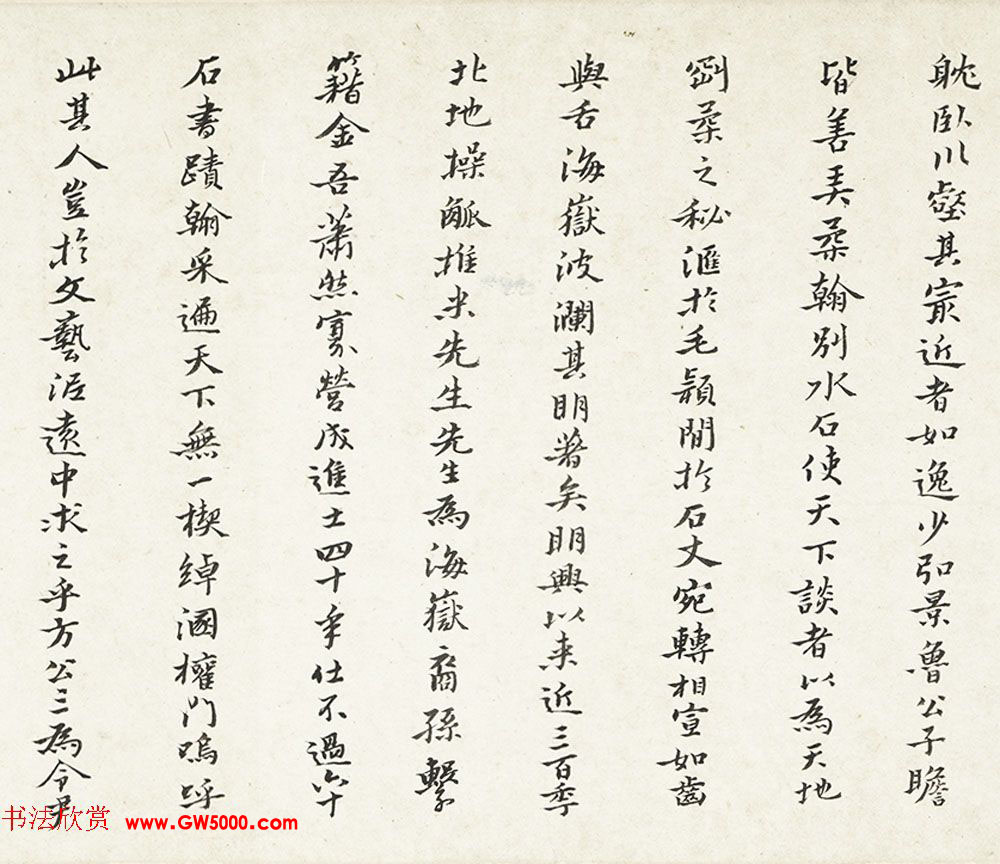 耽臥川壑其㝡近者如逸少弘景魯公子瞻
皆善美柔翰別水石使天下談者以為天地
劉柔之秘滙於毛穎間於石丈宛轉相宣如齒
與舌海嶽波瀾其明著矣明興以來近三百季
北地操觚推米先生先生為海嶽裔孫繫
籍金吾蕭然寡營成進士四十年仕不過六十
石書蹟翰采遍天下無一楔綽溷擁門嗚呼
此其人豈於文藝涯遠中求之乎方公三為令尹
书法欣赏 www.GW5000.com